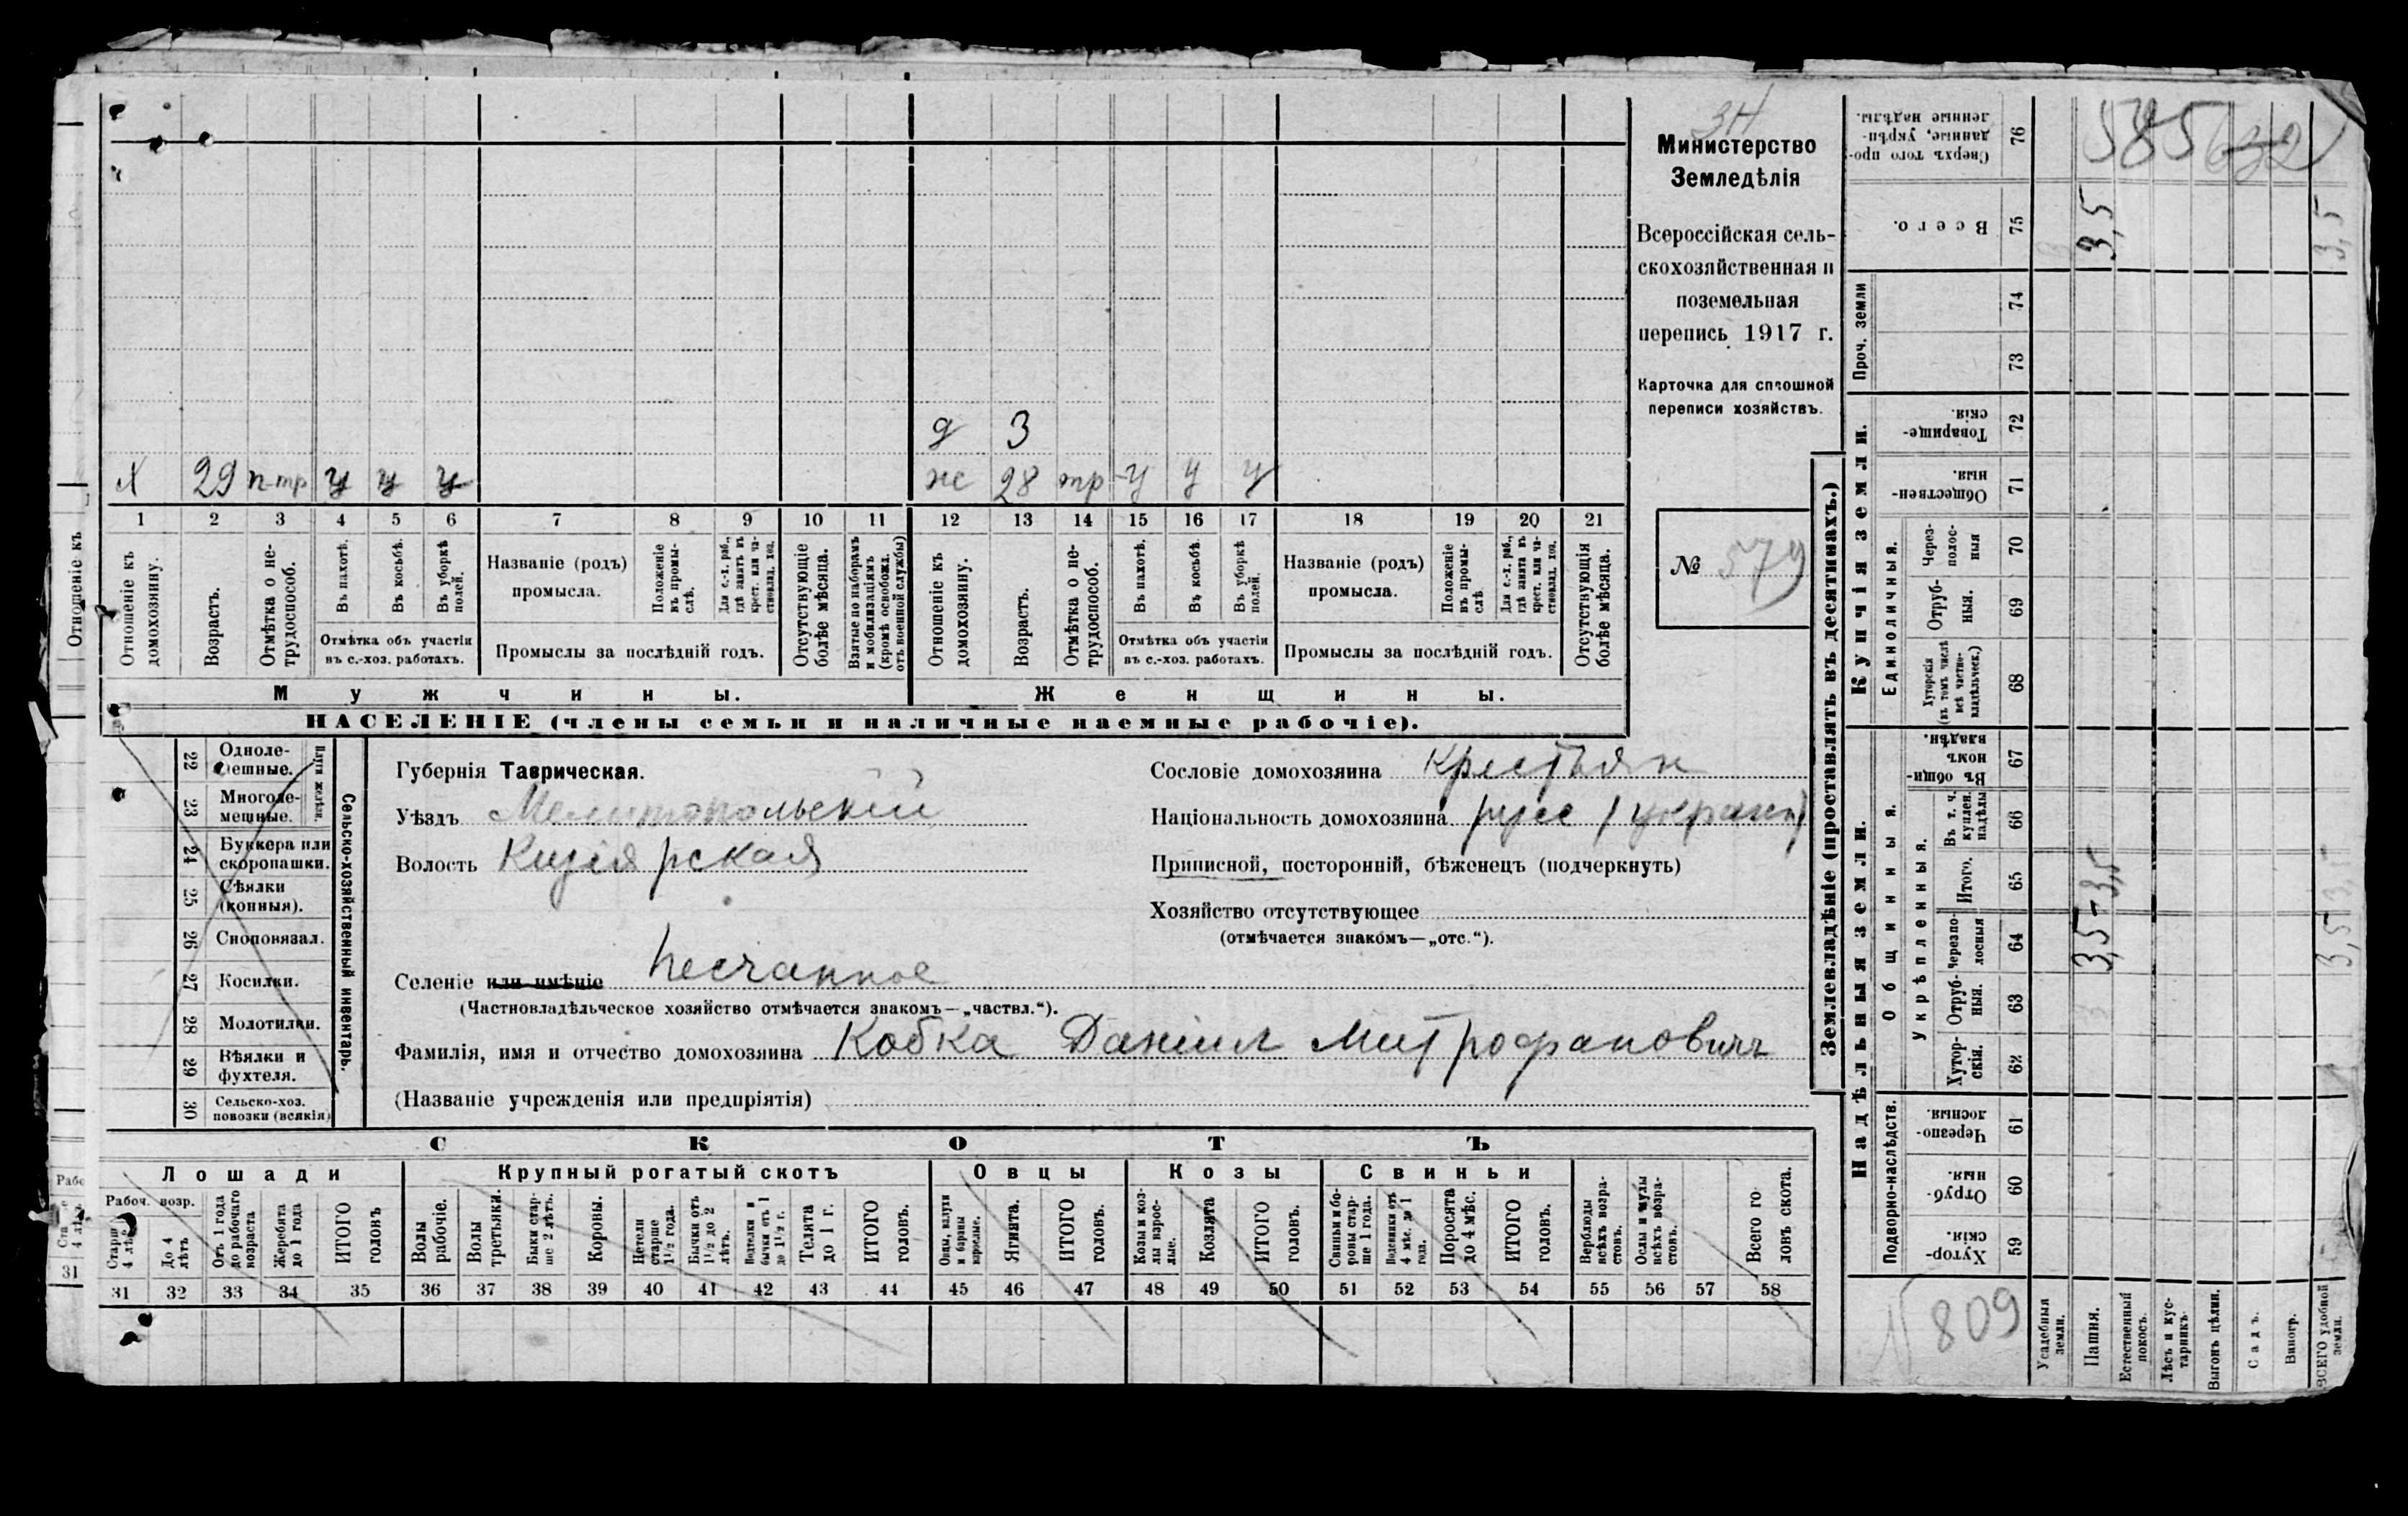 ЗН
Министерство
Земледѣлія
Всероссійская сель-
скохозяйственная и
поземельная
перепись 1917 г.
Карточка для сплошной
переписи хозяйствъ.
№ 579
д 3
Х 29 п-тр у у у
ж 28 тр у у у
1 2 3 4 5 6 7 8 9 10 11 12 13 14 15 16 17 18 19 20 21
Отношеніе къ домохозяину.
Возрастъ.
Отмѣтка о не-
трудоспособ.
Въ пахотѣ.
Въ косьбѣ.
Въ уборкѣ полей.
Отмѣтка объ участіи
въ с.-хоз. работахъ.
Названіе (родъ)
промысла.
Положеніе
въ промы-
слѣ.
Для с.-х. раб.,
гдѣ занятъ въ
крест. или ча-
стновлад. хоз.
Промыслы за послѣдній годъ.
Отсутствующіе
болѣе мѣсяца.
Взятые по наборамъ
и мобилизаціямъ
(кромѣ освобожд.
отъ военной службы)
Отношеніе къ
домохозяину.
Возрастъ.
Отмѣтка о не-
трудоспособ.
Въ пахотѣ.
Въ косьбѣ.
Въ уборкѣ
полей.
Отмѣтка объ участіи
въ с.-хоз. работахъ.
Названіе (родъ)
промысла.
Положеніе
въ промы-
слѣ.
Для с.-х. раб.,
гдѣ занята въ
крест. или ча-
стновлад. хоз.
Промыслы за послѣдній годъ.
Отсутствующія
болѣе мѣсяца.
Мужчины.
Женщины.
НАСЕЛЕНІЕ (члены семьи и наличные наемные рабочіе).
Отношеніе къ
22 Одноле-
мешные.
23 Многоле-
мешные.
Плуги желѣзн.
24 Буккера или
скоропашки.
25 Сѣялки
(конныя).
26 Сноповязал.
27 Косилки.
28 Молотилки.
29 Вѣялки и
фухтеля.
30 Сельско-хоз.
повозки (всякія)
Сельско-хозяйственный инвентарь.
Губернія Таврическая.
Уѣздъ Мелитопольскій
Волость Кизіярская
Селеніе или имѣніе Песчанное
(Частновладѣльческое хозяйство отмѣчается знакомъ—„частвл.“).
Фамилія, имя и отчество домохозяина Кобка Даніил Митрофанович
(Названіе учрежденія или предпріятія)
Сословіе домохозяина Крестьян
Національность домохозяина русс (украин)
Приписной, посторонній, бѣженецъ (подчеркнуть)
Хозяйство отсутствующее
(отмѣчается знакомъ—„отс.“).
СКОТЪ
Лошади
Крупный рогатый скотъ
Овцы
Козы
Свиньи
Рабоч. возр.
Старше
4 лѣтъ
До 4
лѣтъ
Отъ 1 года
до рабочаго
возраста
Жеребята
до 1 года
ИТОГО
головъ
Волы
рабочіе.
Волы
третьяки.
Быки стар-
ше 2 лѣтъ.
Коровы.
Нетели
старше
1½ года.
Бычки отъ
1½ до 2
лѣтъ.
Подтелки и
бычки отъ 1
до 1½ г.
Телята
до 1 г.
ИТОГО
головъ.
Овцы, валухи
и бараны
взрослые.
Ягнята.
ИТОГО
головъ.
Козы и коз-
лы взрос-
лые.
Козлята
ИТОГО
головъ.
Свиньи и бо-
ровы стар-
ше 1 года.
Подсвинки отъ
4 мѣс. до 1
года.
Поросята
до 4 мѣс.
ИТОГО
головъ.
Верблюды
всѣхъ возра-
стовъ.
Ослы и мулы
всѣхъ возра-
стовъ.
Всего го
ловъ скота.
31 31 32 33 34 35 36 37 38 39 40 41 42 43 44 45 46 47 48 49 50 51 52 53 54 55 56 57 58
Землевладѣніе (проставлять въ десятинахъ.)
Надѣльныя земли.
Купчія земли.
Проч. земли
Подворно-наслѣдств.
Общинныя.
Укрѣпленныя.
Единоличныя.
Хутор-
скія. 59
Отруб-
ныя. 60
Черезпо-
лосныя 61
Хутор-
скія. 62
Отруб-
ныя. 63
Черезпо-
лосныя 64
Итого. 65
Въ т. ч.
куплен.
надѣлы 66
Въ общин-
номъ
владѣн. 67
Хуторскія
(въ томъ числѣ
всѣ частно-
владѣльческ.) 68
Отруб-
ныя. 69
Через-
полос-
ныя 70
Обществен-
ныя. 71
Товарище-
скія. 72
73
74
Всего. 75
Сверхъ того про-
данные, укрѣп-
ленные надѣлы. 76
585 632
3,5 3,5
3,5 3,5
3,5 3,5
N 809
Усадебныя
земли.
Пашня.
Естественный
покосъ.
Лѣсъ и кус-
тарникъ.
Выгонъ цѣлин.
Садъ.
Виногр.
ВСЕГО удобной
земли.